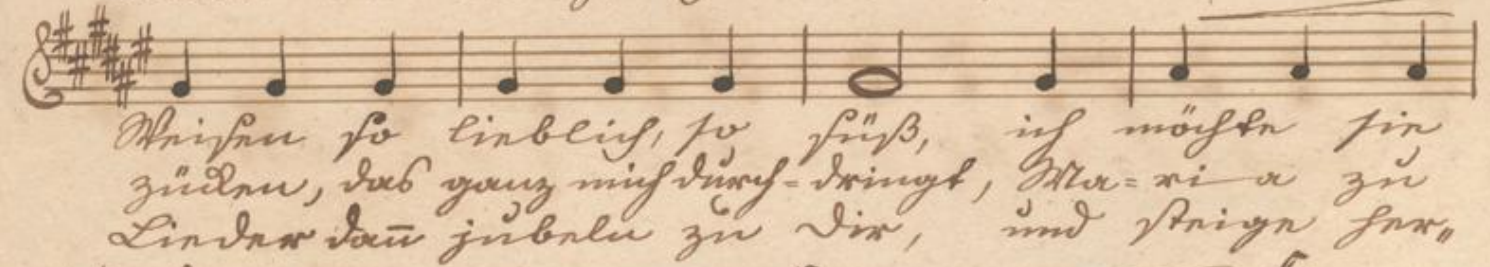 Weisen so lieblich, so süß, ich möchte sie
zücken, das ganz mich durch-dringt, Ma-ri-a zu
Lieder dann jubeln zu Dir, und steige her-